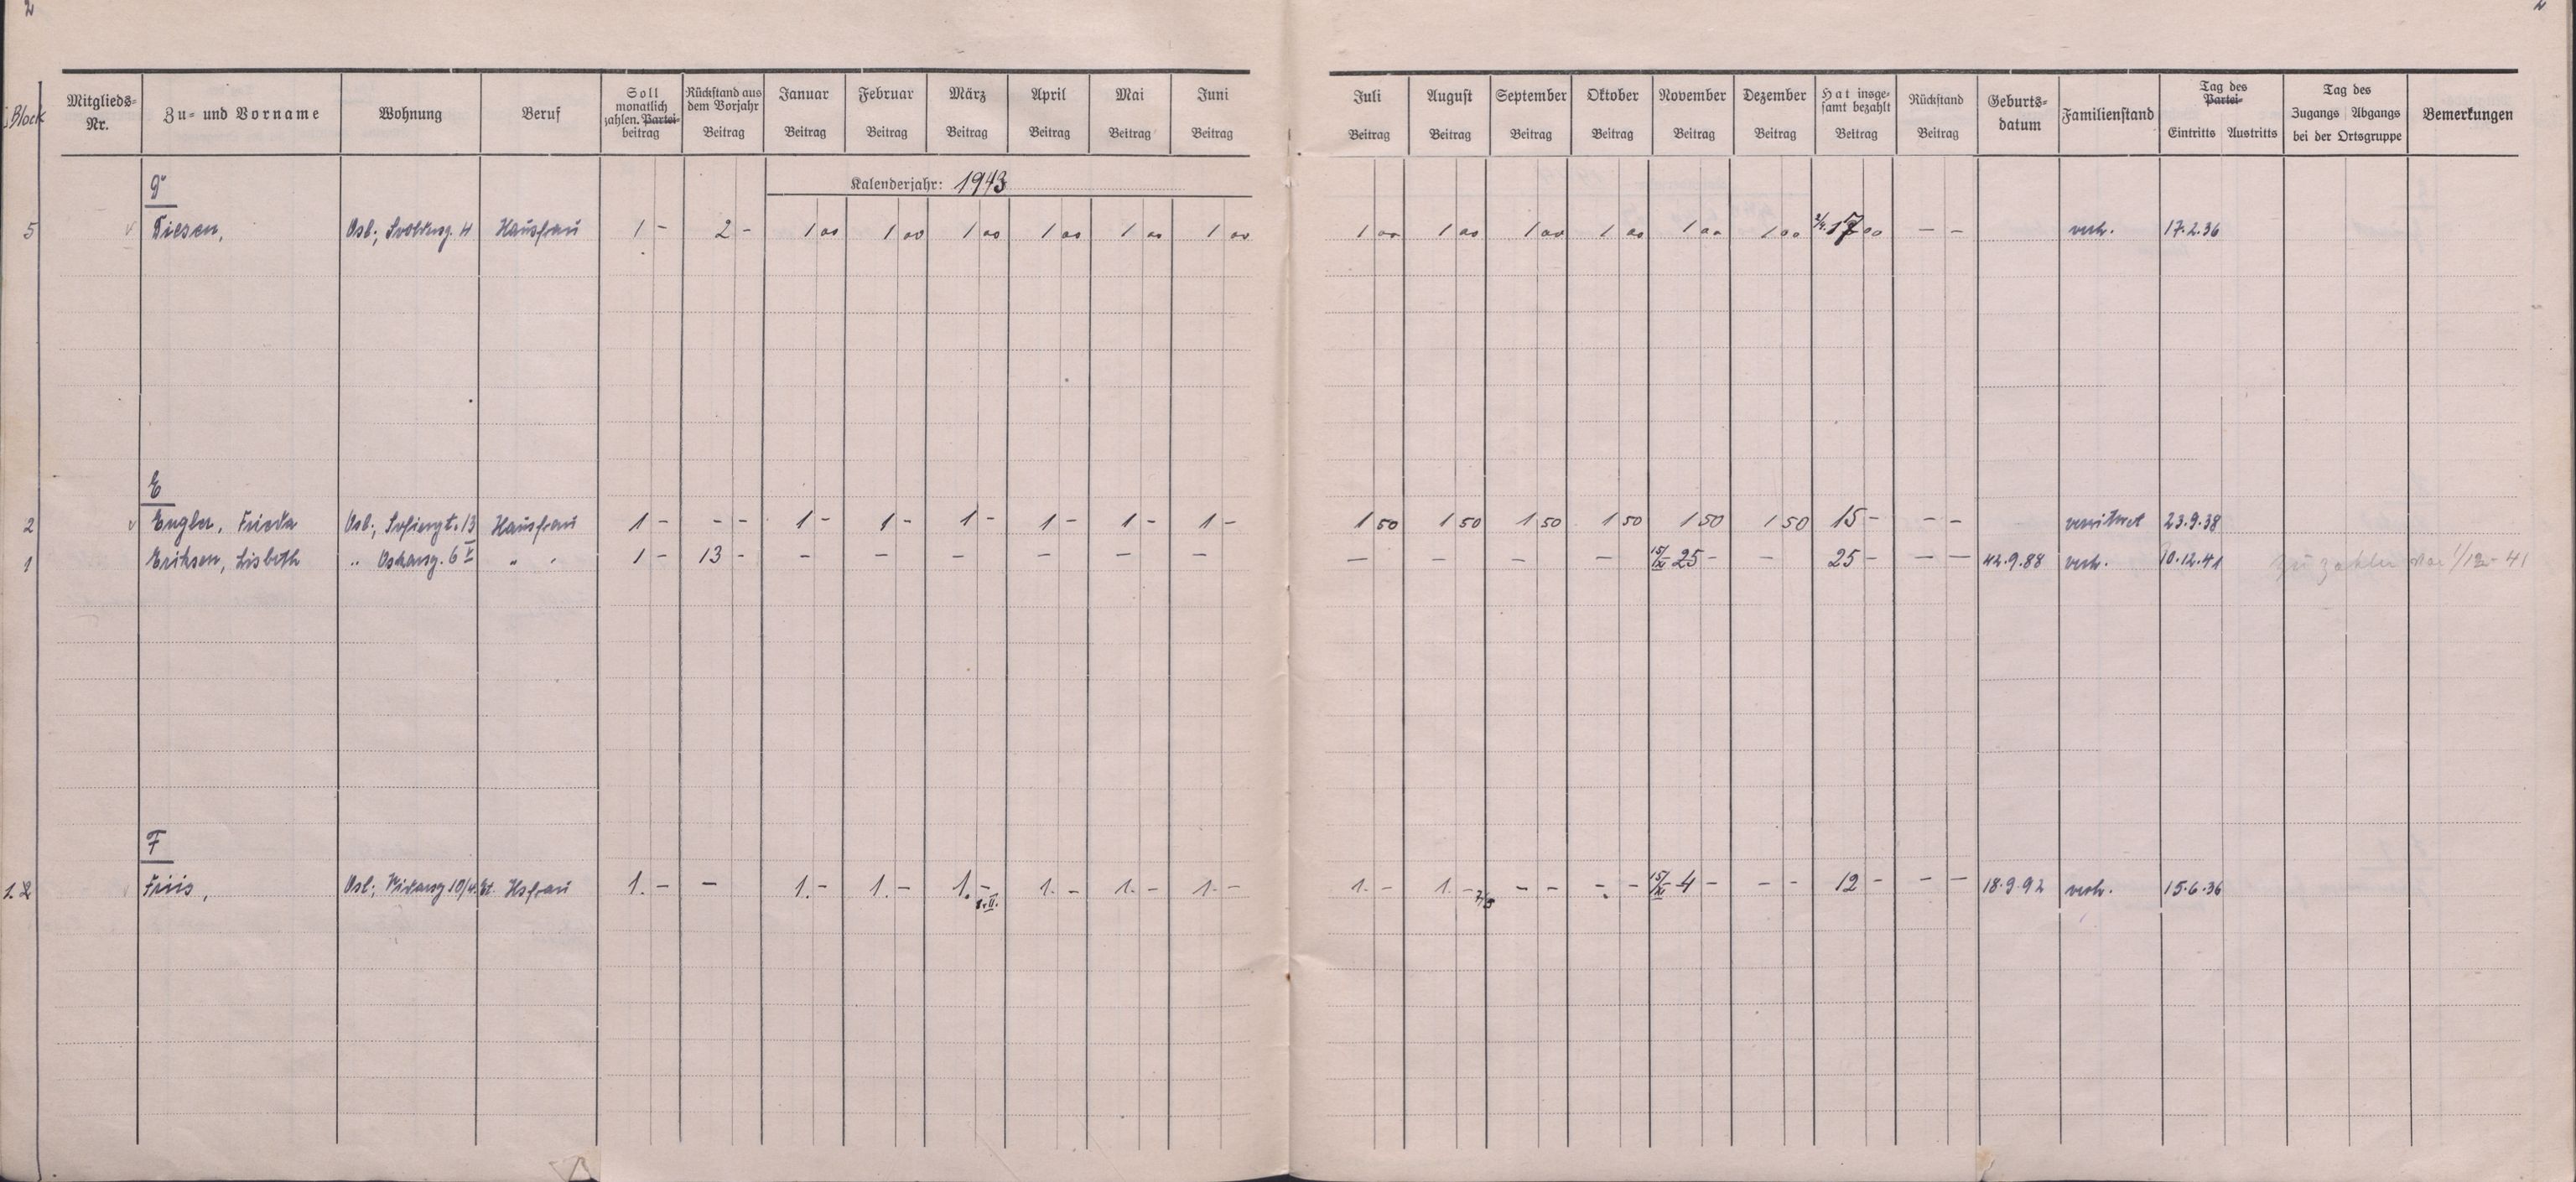 2
2
Block
Mitglieds-Nr. Zu- und Vorname Wohnung Beruf Soll monatlich zahlen. Partei-beitrag Rückstand aus dem Vorjahr Beitrag Januar Beitrag Februar Beitrag März Beitrag April Beitrag Mai Beitrag Juni Beitrag Juli Beitrag August Beitrag September Beitrag Oktober Beitrag November Beitrag Dezember Beitrag Hat insge-samt bezahlt Beitrag Rückstand Beitrag Geburts-datum Familienstand Tag des Partei- Eintritts Austritts Tag des Zugangs Abgangs bei der Ortsgruppe Bemerkungen
Kalenderjahr: 1943
5 Diesen, Osl., 4 Hausfrau 1 - 2 - 1 00 1 00 1 00 1 00 1 00 1 00 1 00 1 00 1 00 1 00 1 00 1 00 17 00 - - verh. 17.2.36
E
2 Engler, Frieda Osl., Sofiengt. 13 Hausfrau 1 - - - 1 - 1 - 1 - 1 - 1 - 1 - 1 50 1 50 1 50 1 50 1 50 1 50 15 - - - verwitwet 23.9.38
1 Eriksen, Lisbeth " Oskarsg. 6 V " " 1 - 13 - - - - - - - - - - - 15/XI 25 - - 25 - - - 12.9.88 verh. 10.12.41 zu zahlen von 1/12-41
F
1.2 Friis, Osl., 10/4. Et. Hsfrau 1. - - 1. - 1. - 1. - 1. - 1. - 1. - 1. - 1. - - - - - 15/XI 4 - - - 12 - - - 18.9.92 verh. 15.6.36